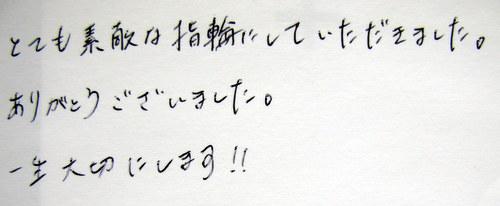 とても素敵な指輪にしていただきました。
ありがとうございました。
一生大切にします!!